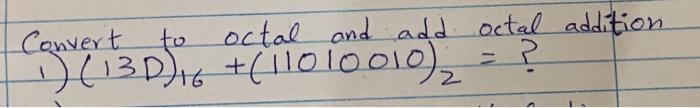 Convert to octal and add octal addition
1) (13D)₁₆ + (11010010)₂ = ?